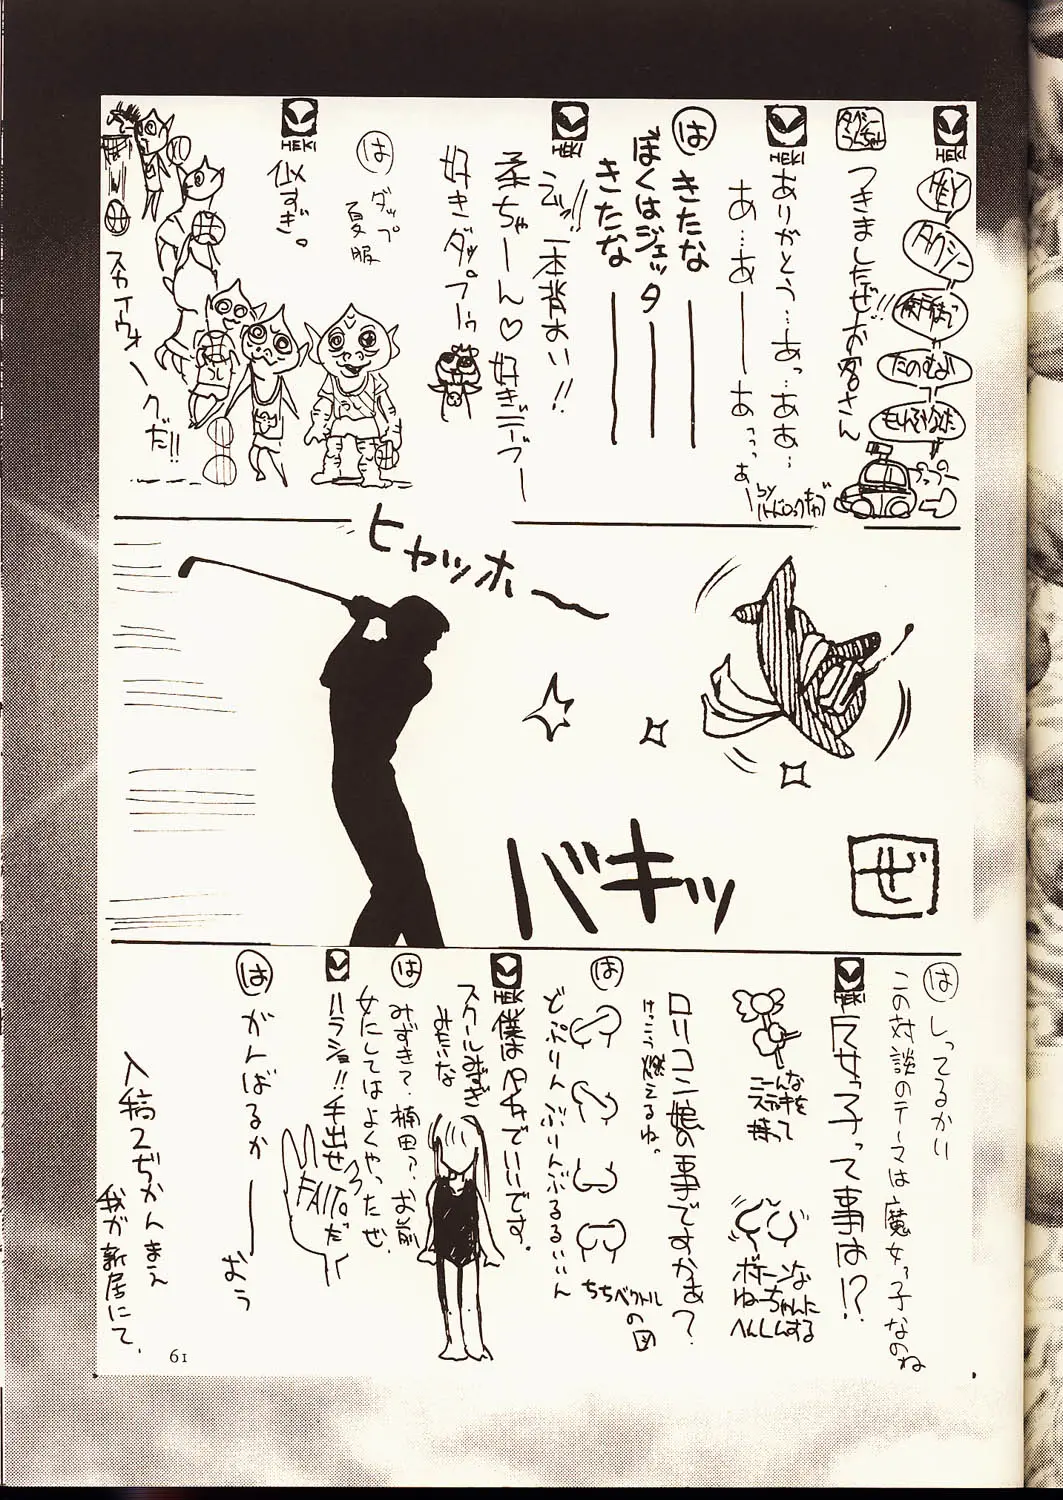 HEKI
HEY
タクシー
たのむよ
つきましたぜお客さん
HEKI
ありがとう…あっ…ああ…
あ…あーーあっっっ
by
は
きたなーー
ぼくはジェッター
きたなーー
HEKI
一本背おい!!
柔ちゃーん♡好きデブー
好きダップーゥ
は
ダップ
夏服
HEKI
似すぎ。
スカイウォークだ!!
ヒャッホ〜
バキッ
ぜ
は
しってるかい
この対談のテーマは魔女っ子なのね
HEKI
魔女っ子って事は!?
こんな
ステッキを
持って
ボイーンな
ねーちゃんに
へんしんする
ロリコン娘の事ですかぁ?
けっこう燃えるね。
は
どぷりんぷりんぷるるぃぃん
ちちベクトル
の図
HEKI
僕はペチャでいいです。
スクールみずぎ
みたいな
は
みずき?楠田?お前
女にしてはよくやったぜ
ハラショ!!手出せ
FAITOだ
は
がんばるかーーおぅ
入稿2ぢかんまえ
我が新居にて、
61